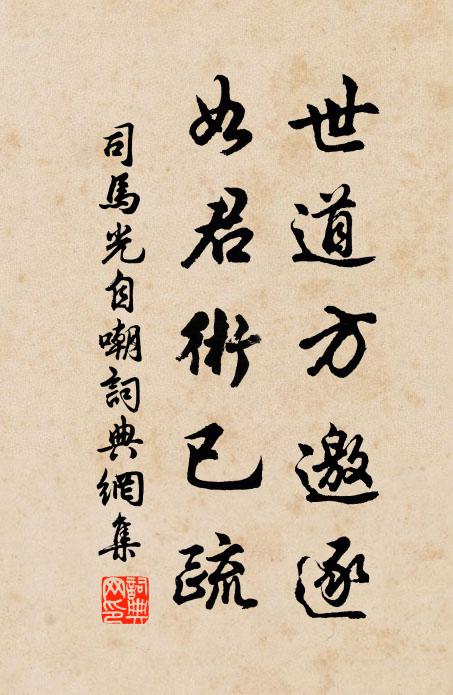 世道方邀逐
如君術已疏
司馬光自嘲詞典網集
詞典网印